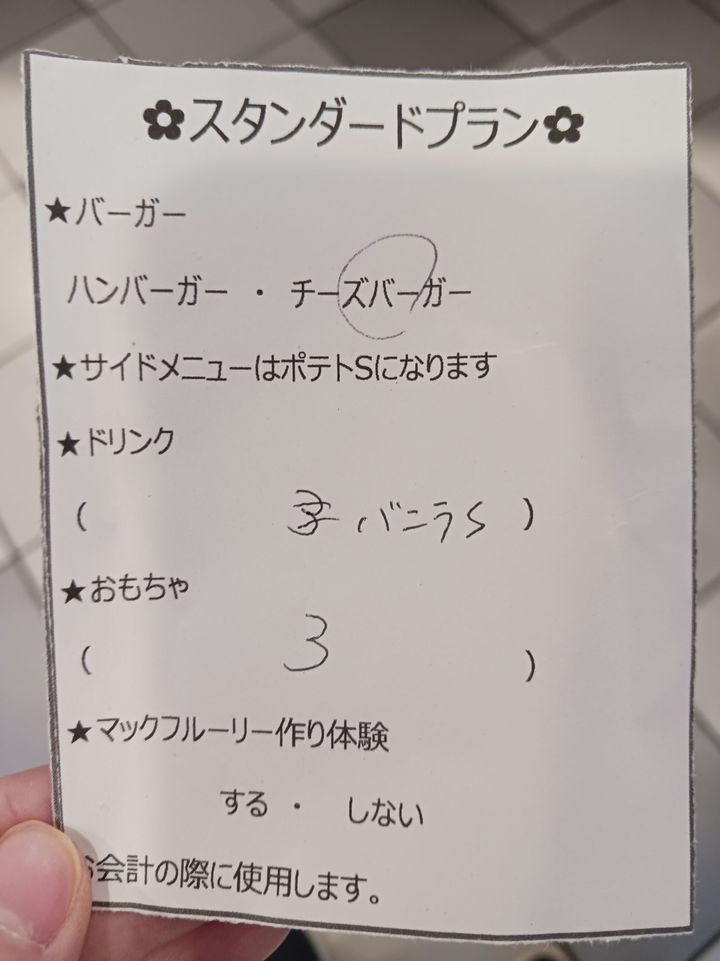 ✿スタンダードプラン✿
★バーガー
ハンバーガー ・ チーズバーガー
★サイドメニューはポテトSになります
★ドリンク
( バニラS )
★おもちゃ
( 3 )
★マックフルーリー作り体験
する ・ しない
会計の際に使用します。